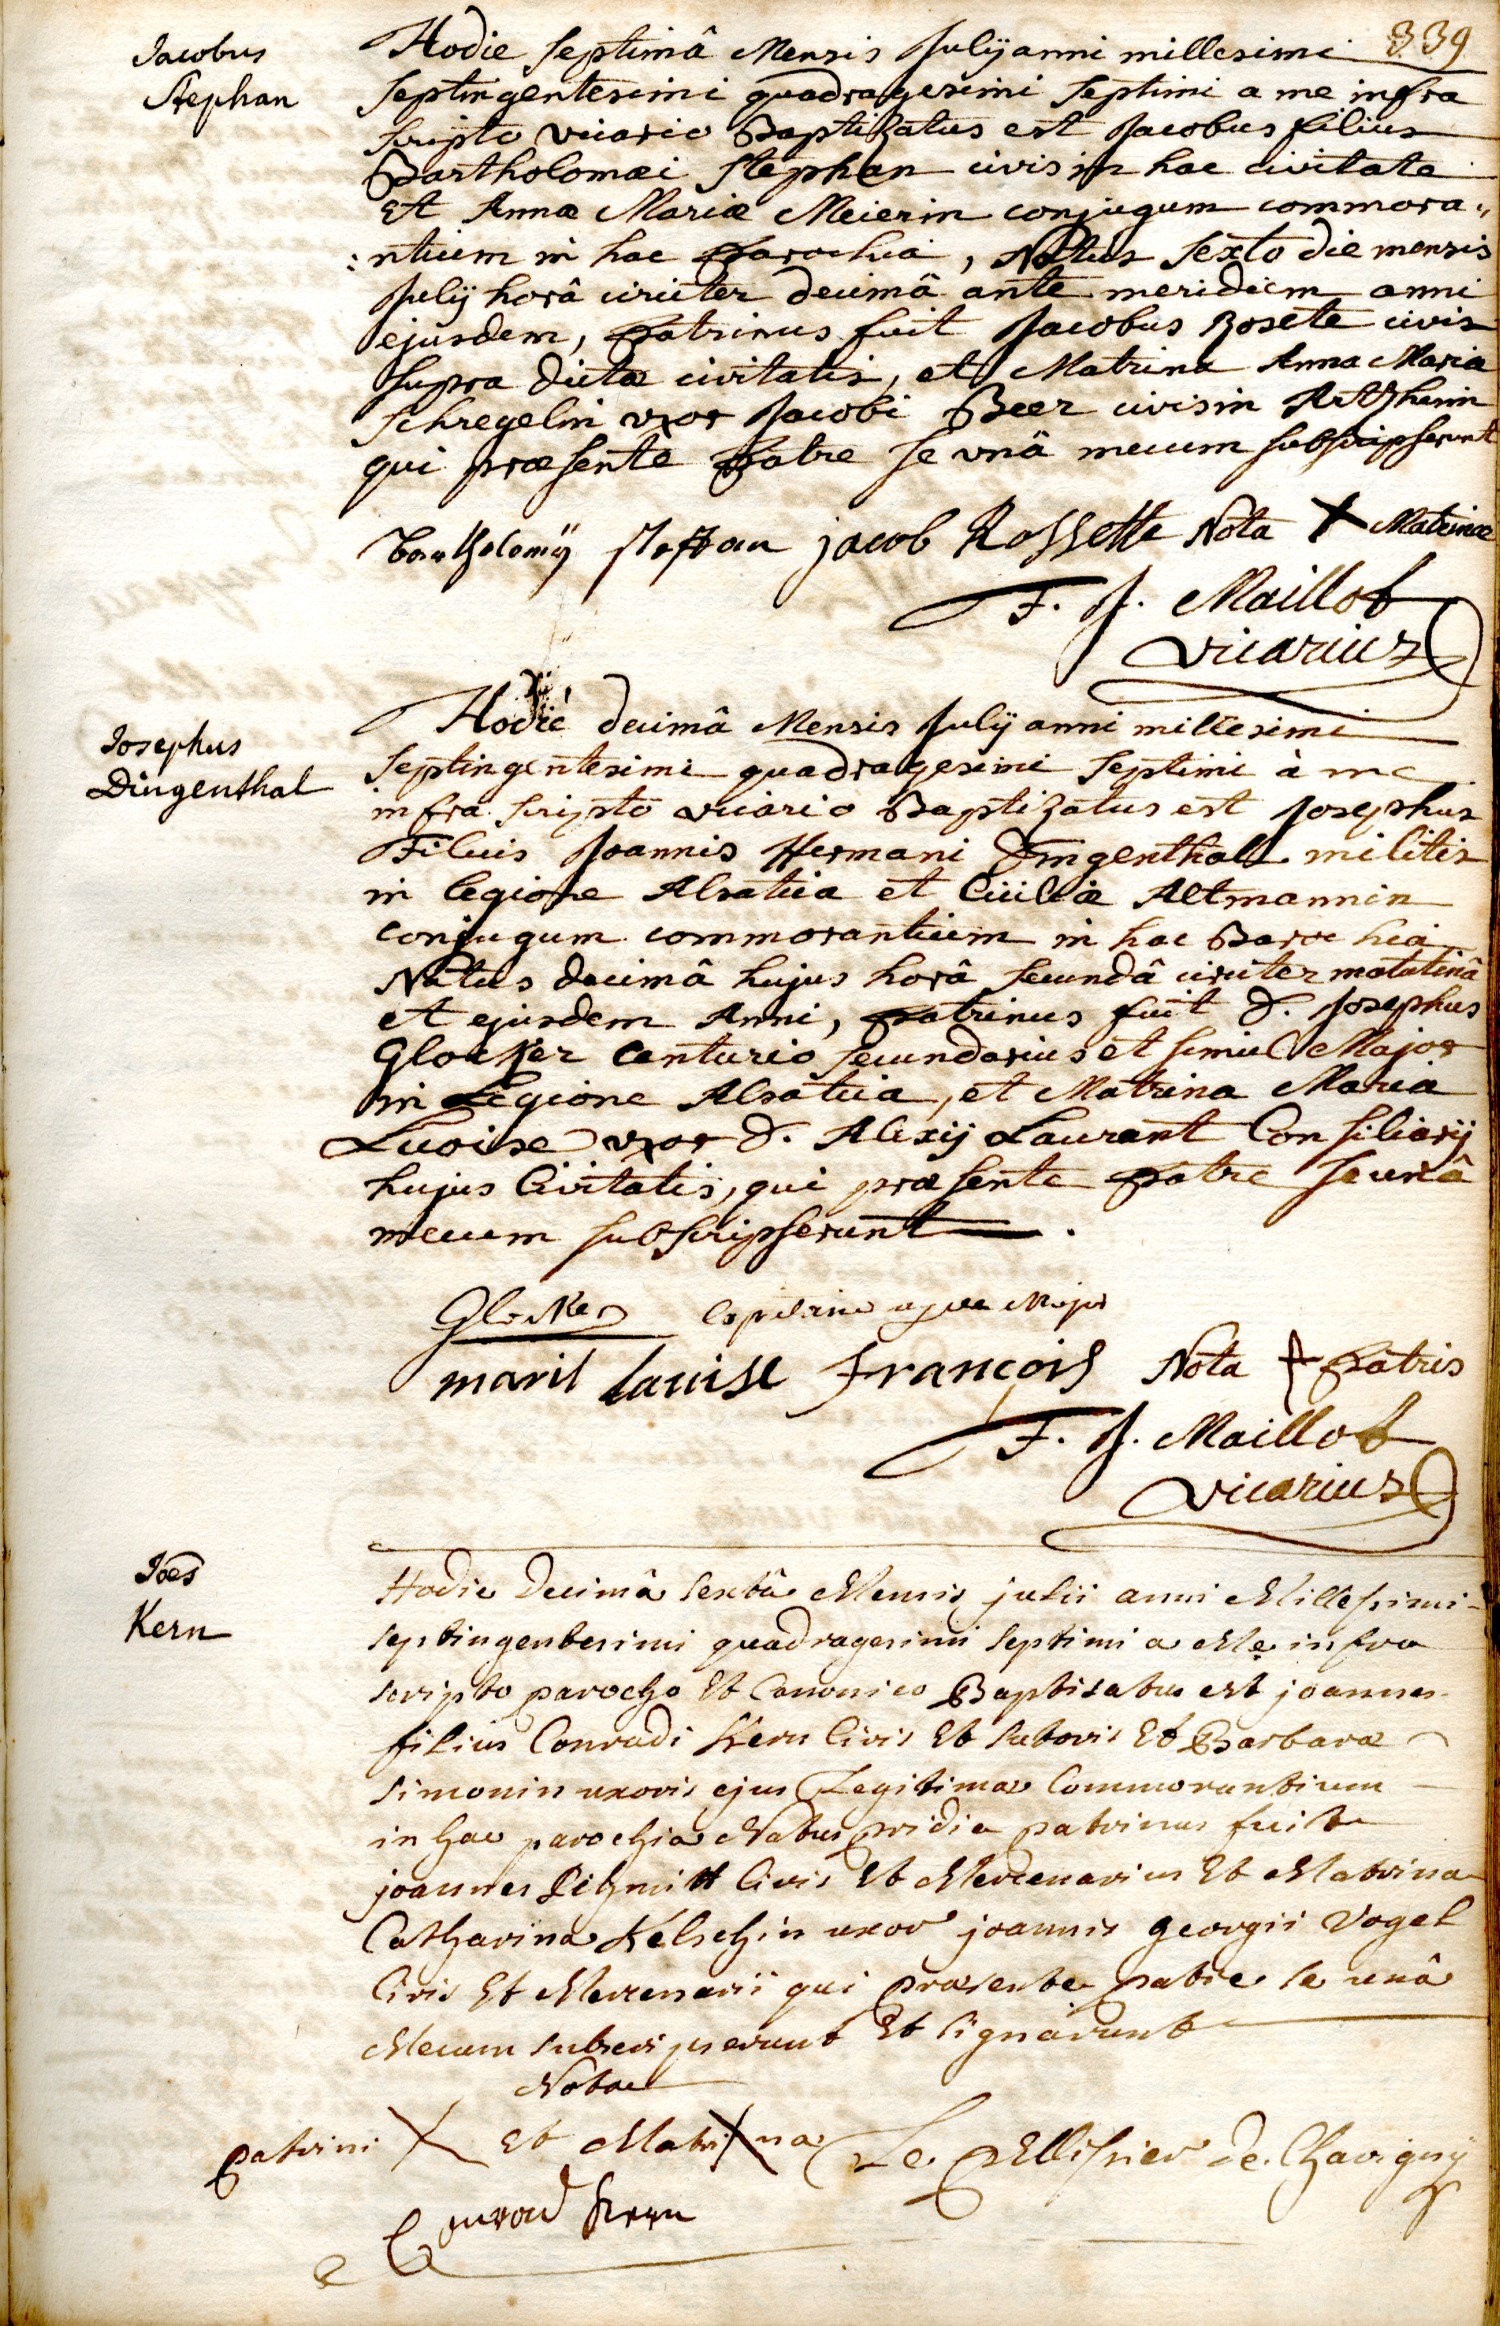 339
Jacobus
Stephan
Hodie septimâ Mensis Julij anni millesimi
septingentesimi quadragesimi septimi a me infra
scripto vicario Baptizatus est Jacobus filius
Bartholomæi Stephan civis in hac civitate
Et Annæ Mariæ Meierin conjugum commora„
:ntium in hac Parochia, Natus sexto die mensis
Julij horâ circiter decimâ ante meridiem anni
ejusdem, Patrinus fuit Jacobus Rosete civis
supra dictæ civitatis, et Matrina Anna Maria
Schregelin vxor Jacobi Beer civis in Artzheim
qui præsente Patre se vnâ mecum subscripserunt
Bartholomÿ Steffan jacob Rossette Nota X Matrinæ
F. J. Maillot
vicarius
Josephus
Dingenthal
Hodiè decimâ Mensis Julij anni millesimi
septingentesimi quadragesimi septimi à me
infra scripto vicario Baptizatus est Josephus
Filius Joannis Hermani Dingenthal militis
in legione Alsatica et Ciciliæ Altmannin
conjugum commorantium in hac Parochia
Natus decimâ hujus horâ secundâ circiter matutinâ
et ejusdem Anni, Patrinus fuit D. Josephus
Glocker Centurio secundarius et simul Major
in Legione Alsatica, et Matrina Maria
Luoise vxor D. Alexij Laurant Consiliarij
hujus Civitatis, qui præsente Patre se unâ
mecum subscripserunt.
Glocker Capitaine Major
marit Lauise François Nota + Patris
F. J. Maillot
vicarius
Joes
Kern
Hodie Decimâ sextâ Mensis julii anni Millesimi
septingentesimi quadragesimi septimi a Me infra
scripto parocho Et Canonico Baptisatus est joannes
filius Conradi Kern Civis Et sutoris Et Barbara
simonin uxoris ejus Legitimæ Commorantium
in hac parochia Natus pridie patrinus fuit
joannes Schmitt Civis Et Mercenarius Et Matrina
Catharina Kelschin uxor joannis georgii Vogel
Civis Et Mercenarii qui præsente patre se unâ
Mecum subscripserunt Et signarunt
Nota
patrini X Et Matri X na Le Pellissier de Chavigny
Conrad Kern